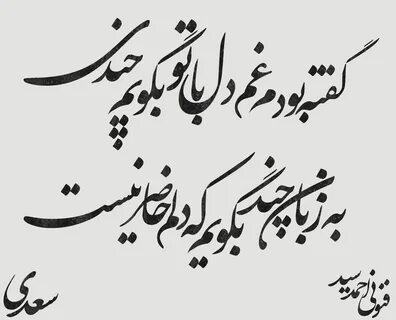 گفته بودم غم دل با تو بگویم چندی
به زبان چند بگویم که دلم حاضر نیست
سعدی
فنونی احمد سید